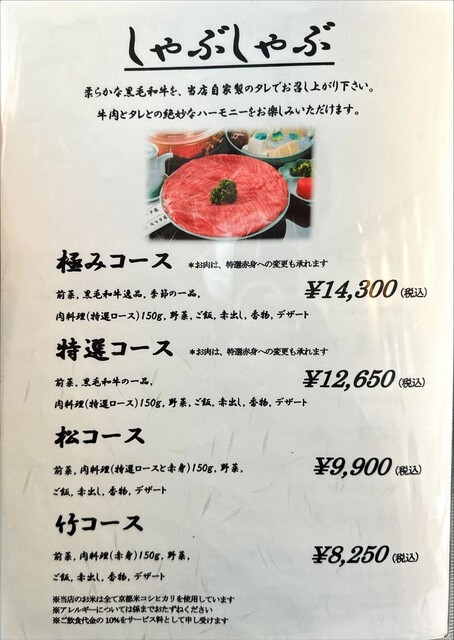 しゃぶしゃぶ
柔らかな黒毛和牛を、当店自家製のタレでお召し上がり下さい。
牛肉とタレとの絶妙なハーモニーをお楽しみいただけます。
極みコース ＊お肉は、特選赤身への変更も承れます
前菜,黒毛和牛逸品,季節の一品, ¥14,300(税込)
肉料理(特選ロース)150g,野菜,ご飯,赤出し,香物,デザート
特選コース ＊お肉は、特選赤身への変更も承れます
前菜,黒毛和牛の一品, ¥12,650(税込)
肉料理(特選ロース)150g,野菜,ご飯,赤出し,香物,デザート
松コース
前菜,肉料理(特選ロースと赤身)150g,野菜, ¥9,900(税込)
ご飯,赤出し,香物,デザート
竹コース
前菜,肉料理(赤身)150g,野菜, ¥8,250(税込)
ご飯,赤出し,香物,デザート
※当店のお米は全て京都米コシヒカリを使用しています
※アレルギーについては係までおたずねください
※ご飲食代金の10%をサービス料として申し受けます